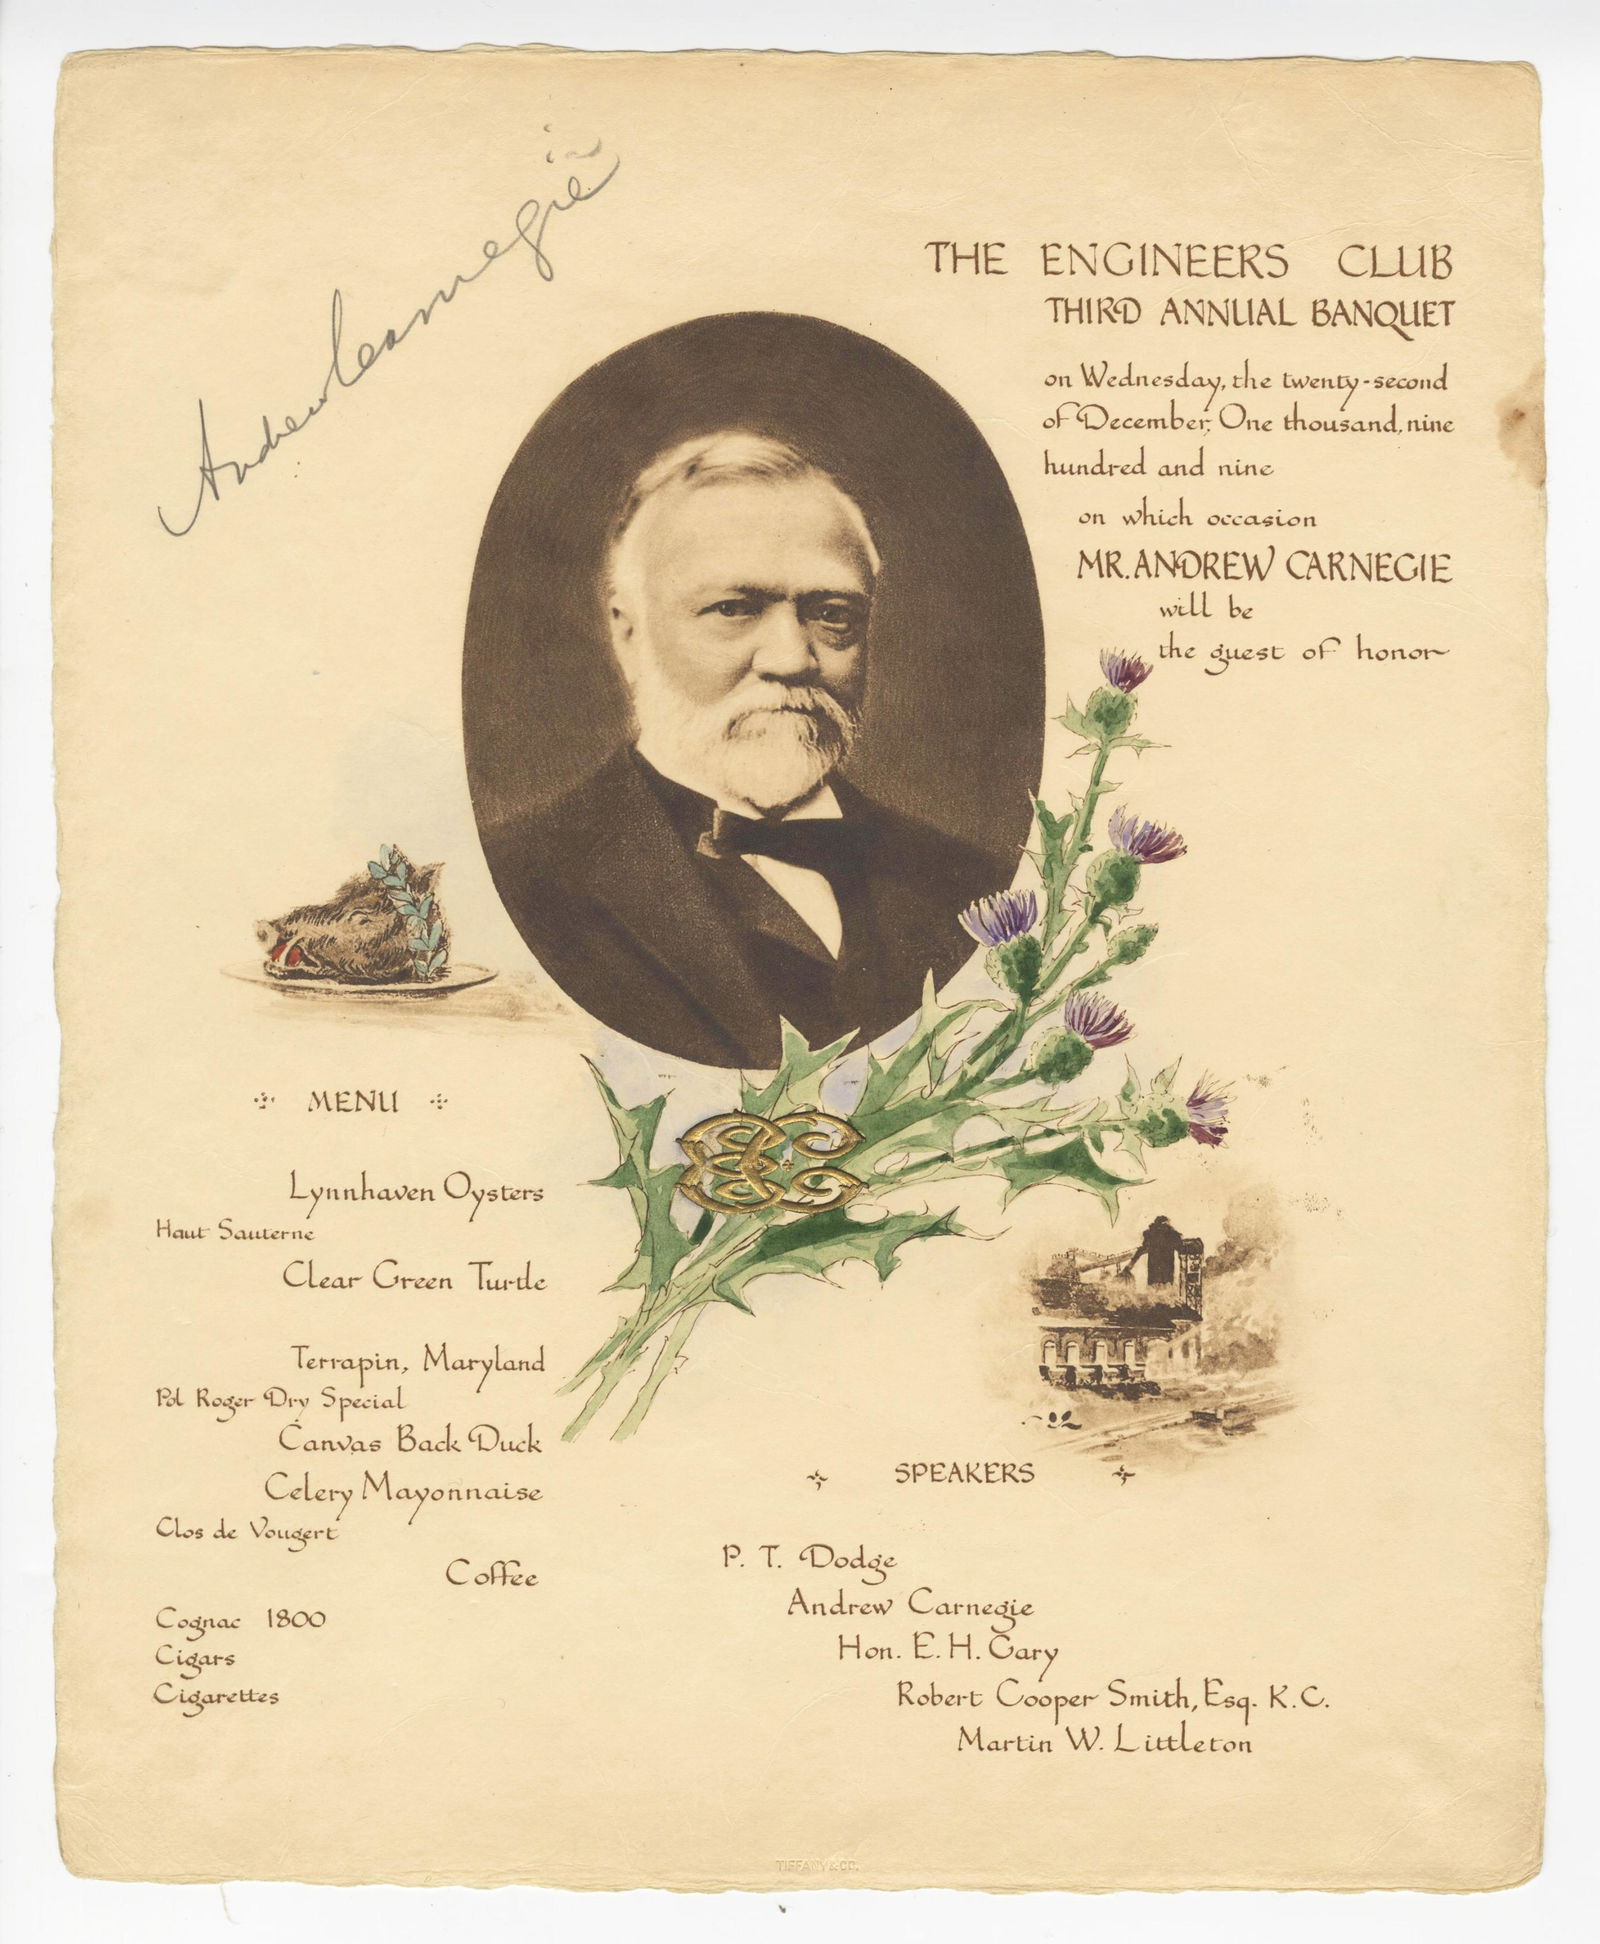 Andrew Carnegie
THE ENGINEERS CLUB
THIRD ANNUAL BANQUET
on Wednesday, the twenty-second
of December, One thousand, nine
hundred and nine
on which occasion
MR. ANDREW CARNEGIE
will be
the guest of honor
MENU
Lynnhaven Oysters
Haut Sauterne
Clear Green Turtle
Terrapin, Maryland
Pol Roger Dry Special
Canvas Back Duck
Celery Mayonnaise
Clos de Vougert
Coffee
Cognac 1800
Cigars
Cigarettes
SPEAKERS
P. T. Dodge
Andrew Carnegie
Hon. E. H. Gary
Robert Cooper Smith, Esq. K. C.
Martin W. Littleton
TIFFANY & CO.